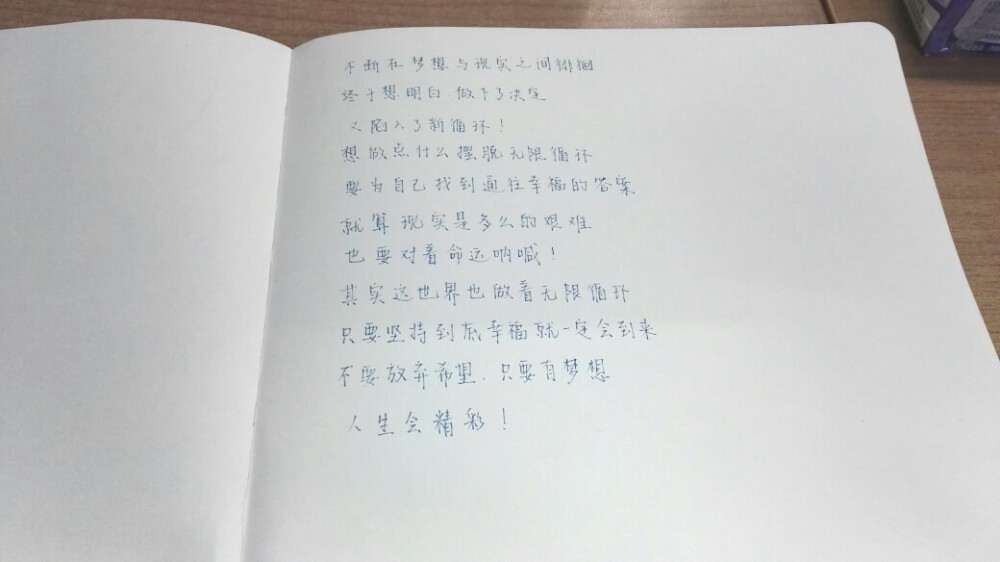 不断在梦想与现实之间徘徊
终于想明白.做下了决定
又陷入了新循环!
想做点什么摆脱无限循环
要为自己找到通往幸福的答案
就算现实是多么的艰难
也要对着命运呐喊!
其实这世界也做着无限循环
只要坚持到底幸福就一定会到来
不要放弃希望.只要有梦想
人生会精彩!